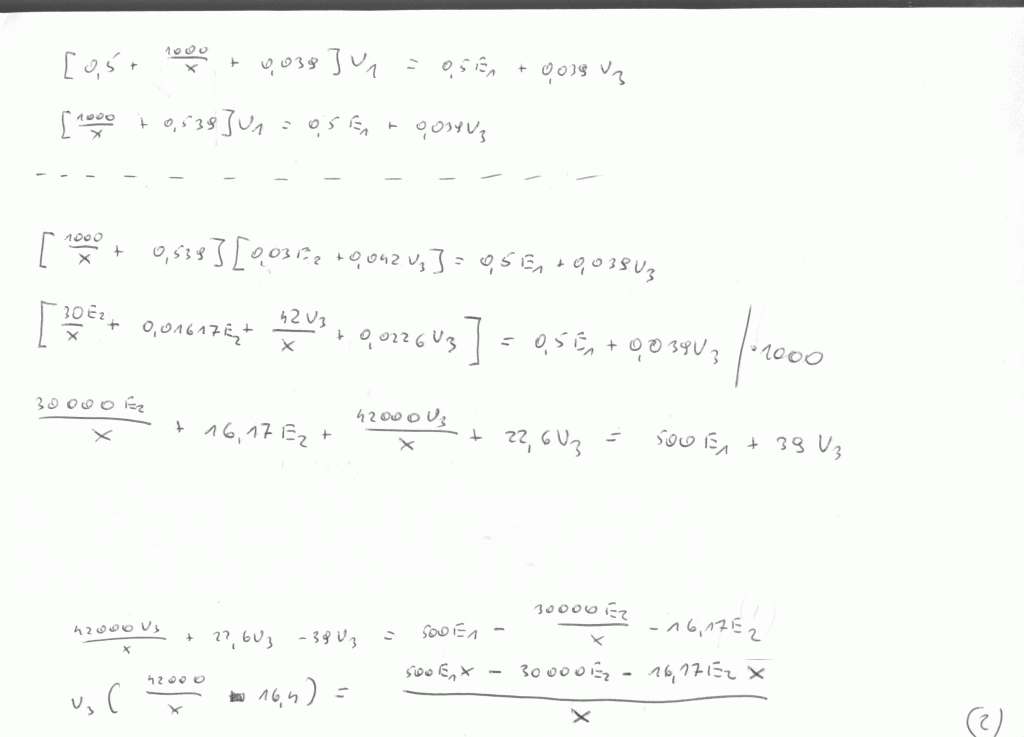 [0,5 + 1000/x + 0,039] U1 = 0,5 E1 + 0,039 U3
[1000/x + 0,539] U1 = 0,5 E1 + 0,039 U3
- - - - - - - - - - - -
[1000/x + 0,539] [0,03 E2 + 0,042 U3] = 0,5 E1 + 0,039 U3
[30 E2/x + 0,01617 E2 + 42 U3/x + 0,0226 U3] = 0,5 E1 + 0,039 U3 / · 1000
30000 E2/x + 16,17 E2 + 42000 U3/x + 22,6 U3 = 500 E1 + 39 U3
42000 U3/x + 22,6 U3 - 39 U3 = 500 E1 - 30000 E2/x - 16,17 E2
U3 (42000/x - 16,4) = (500 E1 x - 30000 E2 - 16,17 E2 x)/x
(2)